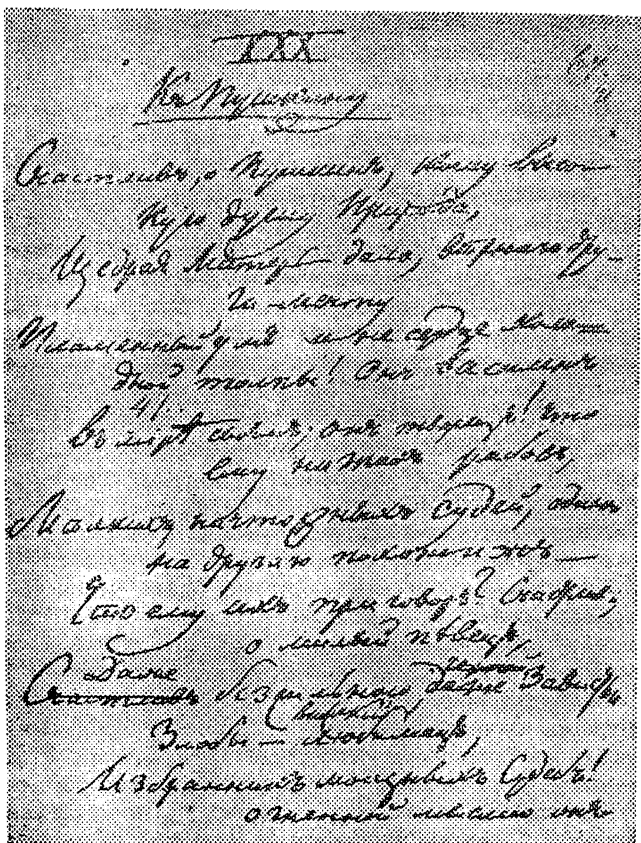 XXX
Къ Пушкину
Счастливъ, о Пушкинъ, кому высо-
кую душу Природа,
Щедрая Матерь, дала, вѣрнаго дру-
га - мечту
Пламенный умъ и не сердце холо-
дной толпы! Онъ всесиленъ
Въ мірѣ своемъ; онъ творецъ! что
ему низкихъ рабовъ,
Мелкихъ ничтожныхъ судей, одинъ
на друга похожихъ —
Что ему ихъ приговоръ? Счастливъ,
о милый пѣвецъ,
Даже
Счастливъ безсильною даже Завистью
высокій
Злобы — любимецъ,
Избранникъ мощныхъ Судебъ!
огненной мыслію онъ